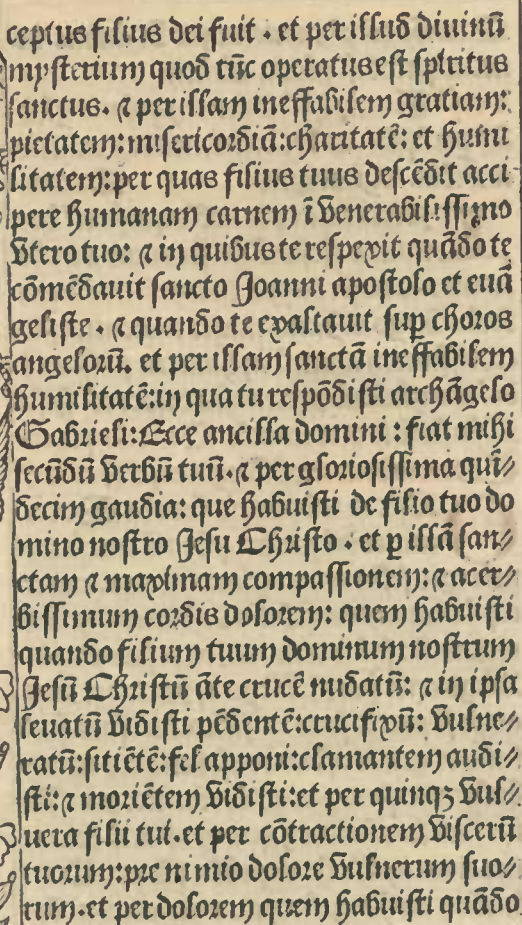 ceptus filius dei fuit . et per illud diuinū
mysterium quod tūc operatus est spiritus
sanctus. ⁊ per illam ineffabilem gratiam:
pietatem: misericordiā: charitatē: et humi
litatem: per quas filius tuus descēdit acci
pere humanam carnem ī venerabilissimo
vtero tuo: ⁊ in quibus te respexit quādo te
cōmēdauit sancto Joanni apostolo et euā
geliste . ⁊ quando te exaltauit sup̱ choros
angelorū. et per illam sanctā ineffabilem
humilitatē: in qua tu respōdisti archāgelo
Gabrieli: Ecce ancilla domini : fiat mihi
secūdū verbū tuū. ⁊ per gloriosissima quī⸗
decim gaudia: que habuisti de filio tuo do
mino nostro Jesu Christo . et ꝑ illā san⸗
ctam ⁊ maximam compassionem: ⁊ acer⸗
bissimum cordis dolorem: quem habuisti
quando filium tuum dominum nostrum
Jesū Christū āte crucē nudatū: ⁊ in ipsa
leuatū vidisti pēdentē: crucifixū: vulne⸗
ratū: sitiētē: fel apponi: clamantem audi⸗
sti: ⁊ moriētem vidisti: et per quinqꝫ vul⸗
uera filii tui. et per cōtractionem viscerū
tuorum: pre nimio dolore vulnerum suo⸗
rum. et per dolorem quem habuisti quādo